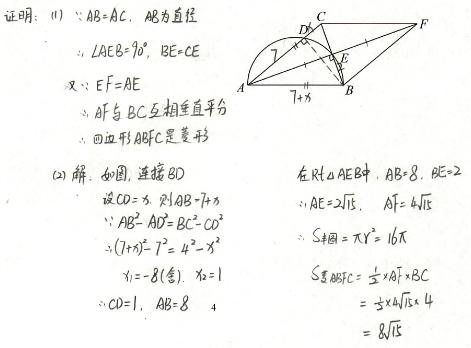 证明: (1) ∵AB=AC, AB为直径
∴ ∠AEB=90°, BE=CE
又∵ EF=AE
∴ AF与BC互相垂直平分
∴ 四边形ABFC是菱形
(2) 解: 如图, 连接BD
设CD=x, 则AB=7+x
∵ AB²-AD²=BC²-CD²
∴(7+x)²-7²=4²-x²
x₁=-8(舍), x₂=1
∴CD=1, AB=8
4
A
B
C
D
E
F
x
7
7+x
在Rt△AEB中, AB=8, BE=2
∴AE=2√15, AF=4√15
∴ S半圆=πr²=16π
S菱ABFC=½×AF×BC
=½×4√15×4
=8√15